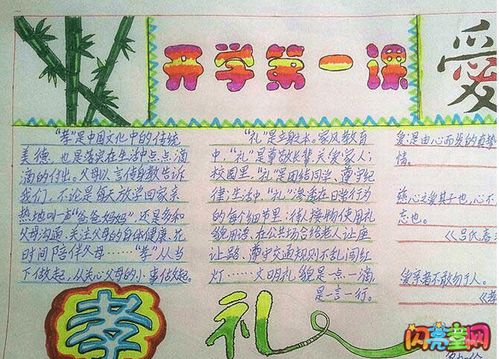 开学第一课
爱
“孝”是中国文化中的传统
美德,也是落实在生活中点点滴
滴的付出。父母以言传身教告诉
我们,不论是每天放学回家亲
热地叫一声“爸爸妈妈”,还是多和
父母沟通,关注父母的身体健康,花
时间陪伴父母……“孝”从当
下做起,从关心父母的小事做起。
孝
“礼”是立身之本。家风教育
中,“礼”是尊敬长辈、关爱家人;
校园里,“礼”是团结同学、遵守纪
律;生活中,“礼”渗透在日常行为
的每个细节里:待人接物使用礼
貌用语,在公共场合给老人让座
让路、遵守交通规则不乱闯红
灯……文明礼貌是一点一滴,
是一言一行。
礼
爱是由心而发的真挚
情。
慈心之爱其子也,心不
忘也。
《吕氏春
爱亲者不敢恶于人。
《孝
闪亮童网